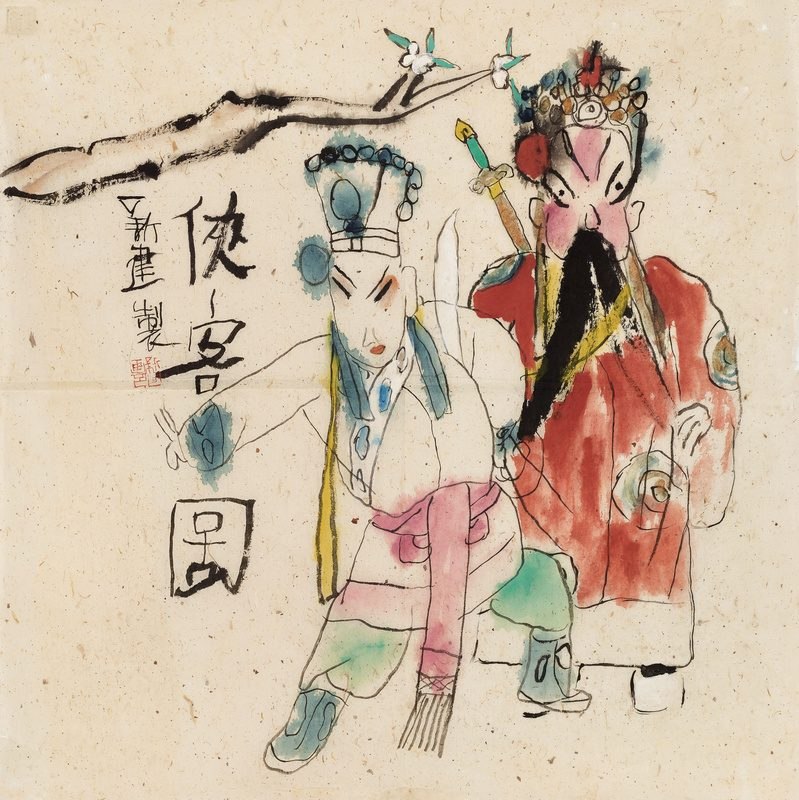 俠客圖
新建製